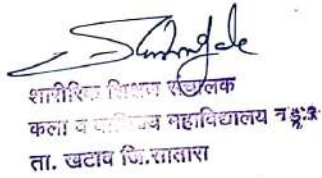 शारीरिक शिक्षण संचालक
कला व वाणिज्य महाविद्यालय
ता. खटाव जि.सातारा